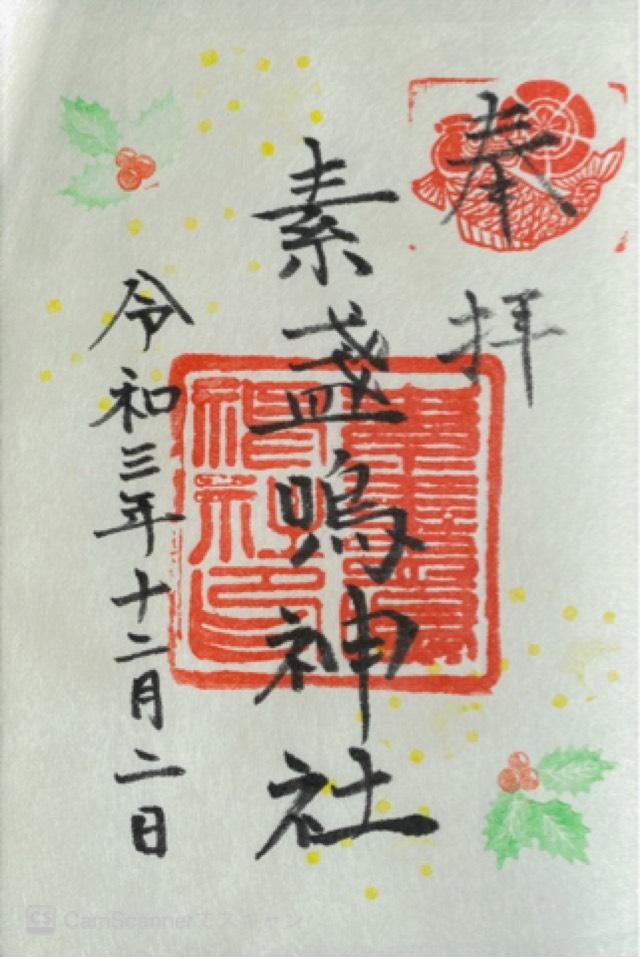 奉拝
素盞嗚神社
令和三年十二月二日
CS CamScannerでスキャン